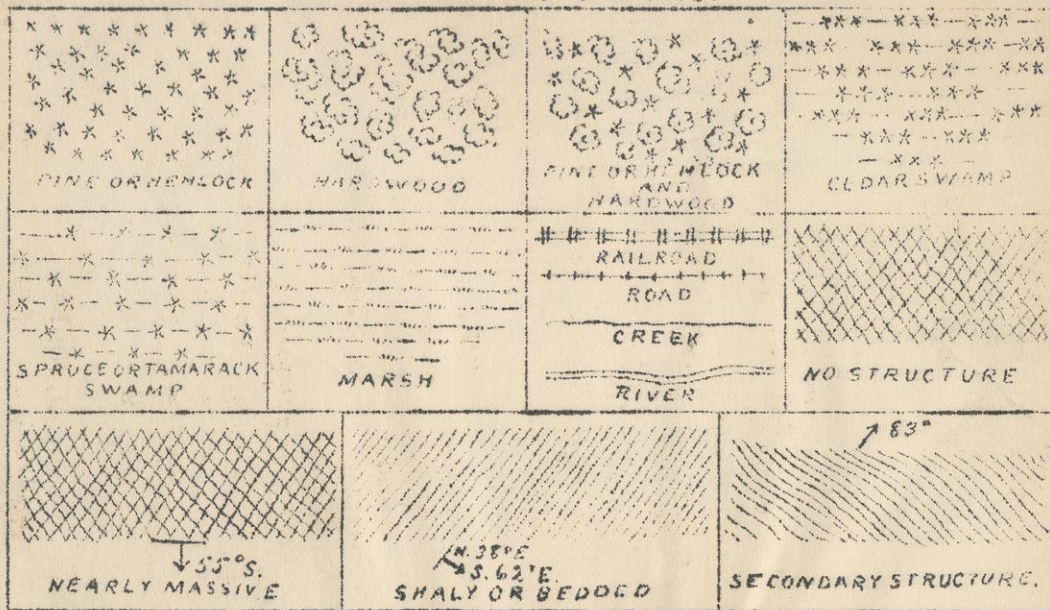 PINE OR HEMLOCK
HARDWOOD
PINE OR HEMLOCK
AND
HARDWOOD
CEDAR SWAMP
SPRUCE OR TAMARACK
SWAMP
MARSH
RAILROAD
ROAD
CREEK
RIVER
NO STRUCTURE
55°S.
NEARLY MASSIVE
N.38°E
S.62°E.
SHALY OR BEDDED
83°
SECONDARY STRUCTURE.